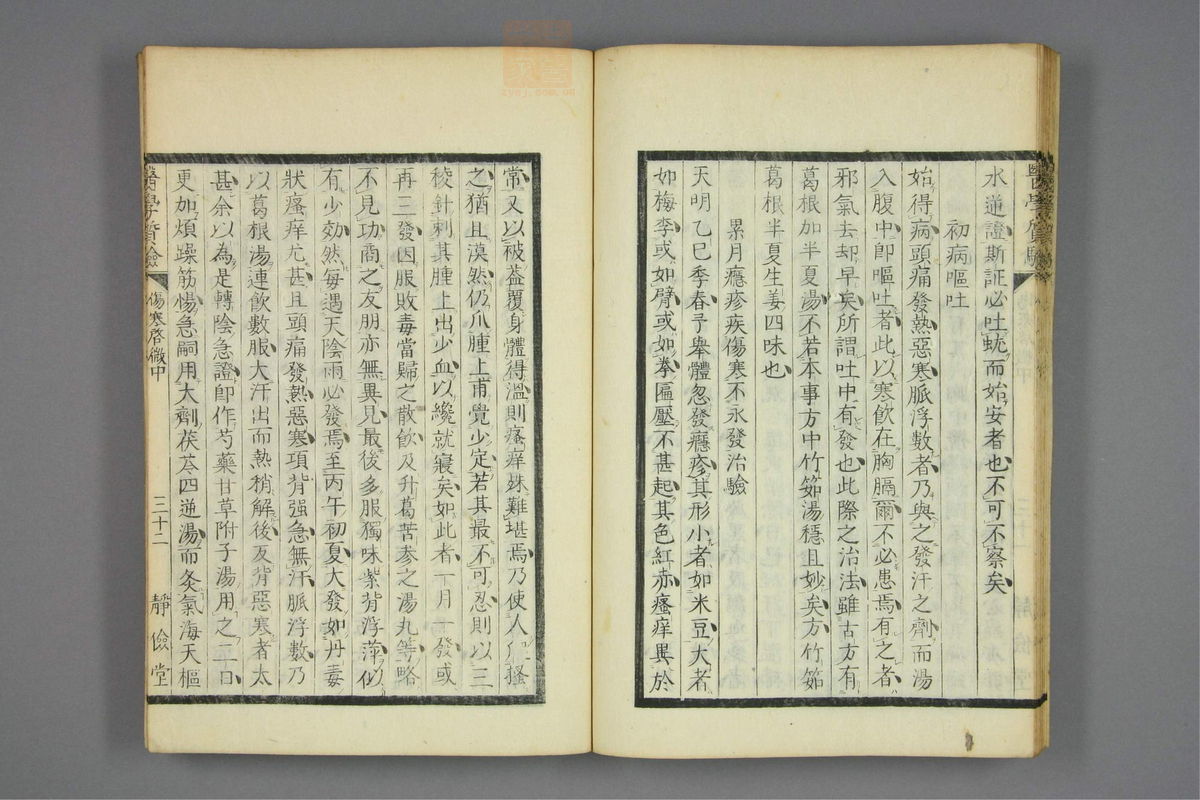 水逆證斯証必吐蚘而始安者也不可不察矣
初病嘔吐
始得病頭痛發熱惡寒脈浮數者乃與之發汗之劑而湯
入腹中卽嘔吐者此以寒飲在胸膈爾不必患焉有之者
邪氣去却早矣所謂吐中有發也此際之治法雖古方有
葛根加半夏湯不若本事方中竹筎湯穩且妙矣方竹筎
葛根半夏生姜四味也
累月癮疹疾傷寒不永發治驗
天明乙巳季春予舉體忽發癮疹其形小者如米豆大者
如梅李或如臂或如拳匾壓不甚起其色紅赤瘙痒異於
常又以被蓋覆身體得溫則瘙痒殊難堪焉乃使人搔
之猶且漠然仍爪腫上甫覺少定若其最不可忍則以三
稜針刺其腫上出少血以纔就寢矣如此者一月一發或
再三發因服敗毒當歸之散飲及升葛苦参之湯丸等略
不見功商之友朋亦無異見最後多服獨味紫背浮萍似
有少効然每遇天陰雨必發焉至丙午初夏大發如丹毒
狀瘙痒尤甚且頭痛發熱惡寒項背强急無汗脈浮數乃
以葛根湯連飲數服大汗出而熱稍解後反背惡寒者太
甚余以為是轉陰急證卽作芍藥甘草附子湯用之一日
更加煩躁筋惕急嗣用大劑茯苓四逆湯而灸氣海天樞
醫學實驗
傷寒啓微中
三十二
靜儉堂
zysj.com.cn